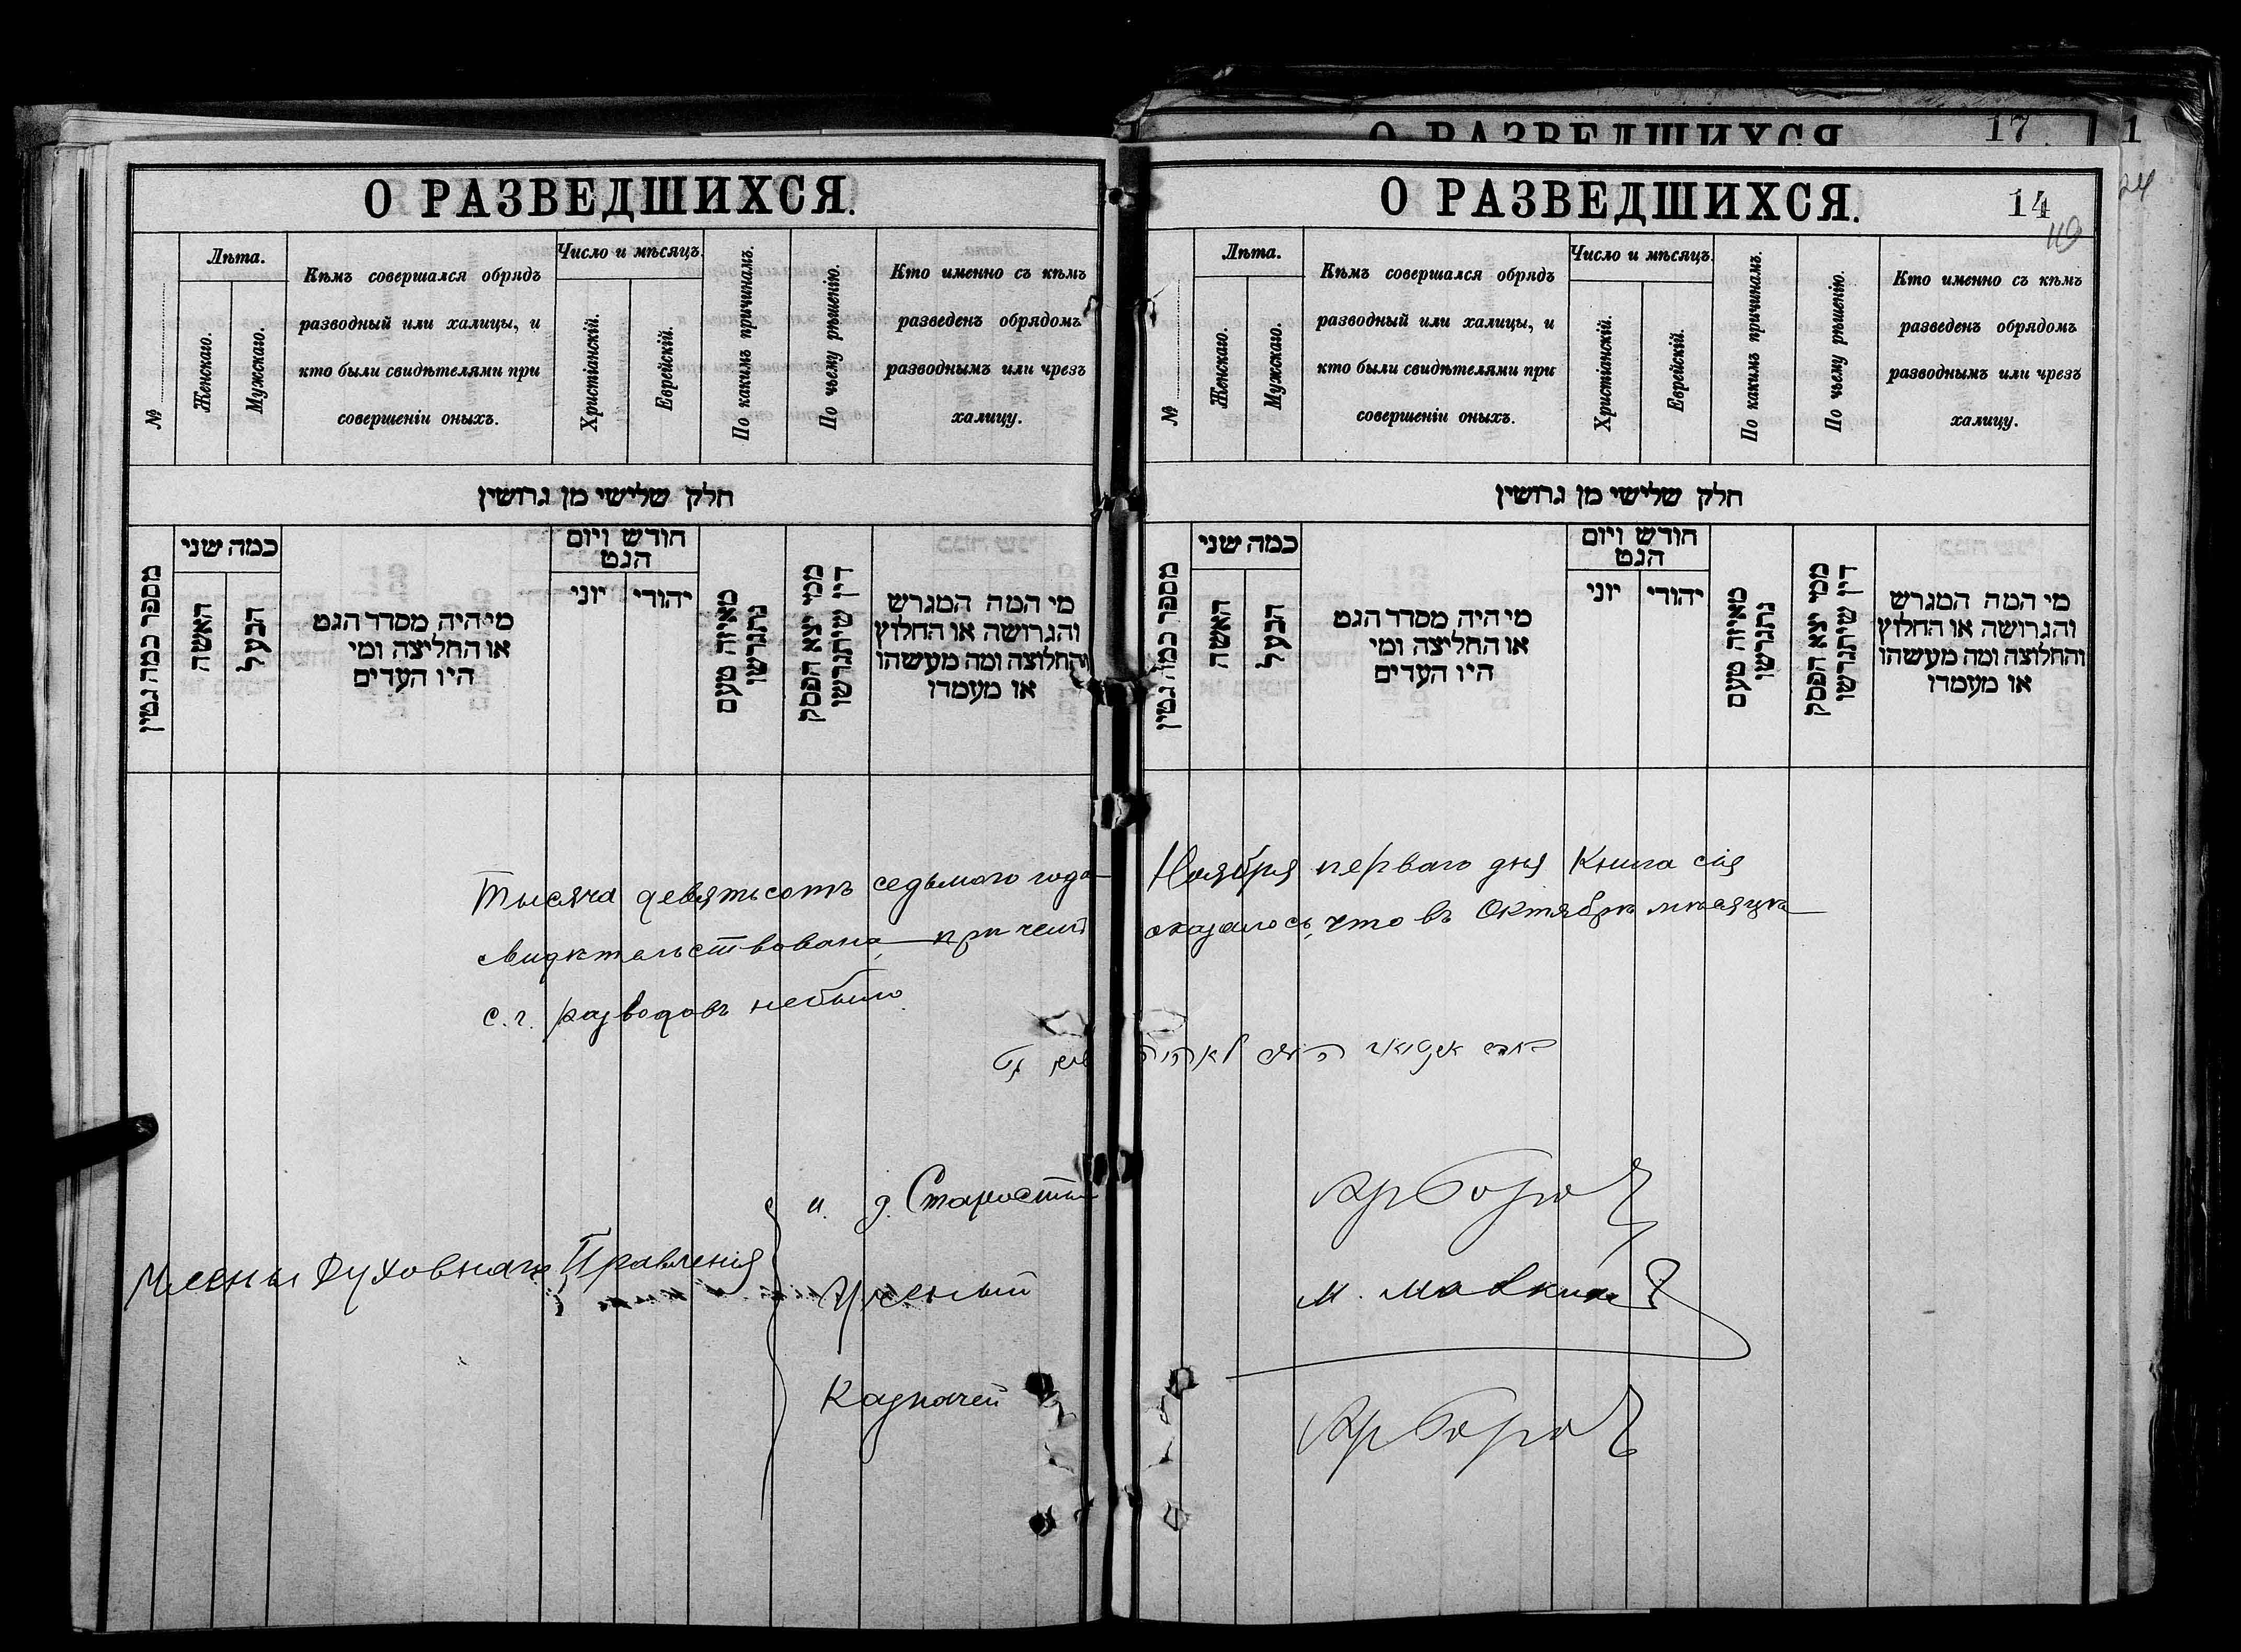 О РАЗВЕДШИХСЯ.
№
Лѣта.
Женскаго.
Мужскаго.
Кѣмъ совершался обрядъ
разводный или халицы, и
кто были свидѣтелями при
совершеніи оныхъ.
Число и мѣсяцъ.
Христіанскій.
Еврейскій.
По какимъ причинамъ.
По чьему рѣшенію.
Кто именно съ кѣмъ
разведенъ обрядомъ
разводнымъ или чрезъ
халицу.
חלק שלישי מן גרושין
מספר כמה גטין
כמה שני
האשה
הבעל
מי היה מסדר הגט
או החליצה ומי
היו העדים
חודש ויום
הגט
יוני
יהודי
מאיזה טעם
נתגרשו
ממי יצא הפסק
דין שיתגרשו
מי המה המגרש
והגרושה או החלוץ
והחלוצה ומה מעשהו
או מעמדו
О РАЗВЕДШИХСЯ
17
1
24
О РАЗВЕДШИХСЯ.
14
№
Лѣта.
Женскаго.
Мужскаго.
Кѣмъ совершался обрядъ
разводный или халицы, и
кто были свидѣтелями при
совершеніи оныхъ.
Число и мѣсяцъ.
Христіанскій.
Еврейскій.
По какимъ причинамъ.
По чьему рѣшенію.
Кто именно съ кѣмъ
разведенъ обрядомъ
разводнымъ или чрезъ
халицу.
חלק שלישי מן גרושין
מספר כמה גטין
כמה שני
האשה
הבעל
מי היה מסדר הגט
או החליצה ומי
היו העדים
חודש ויום
הגט
יוני
יהודי
מאיזה טעם
נתגרשו
ממי יצא הפסק
דין שיתגרשו
מי המה המגרש
והגרושה או החלוץ
והחלוצה ומה מעשהו
או מעמדו
Тысяча девятьсотъ седьмого года Ноября перваго дня Книга сія
свидѣтельствована, при чемъ оказалось, что въ Октябрѣ мѣсяцѣ
с. г. разводовъ небыло
и. д. Старосты
Члены Духовнаго Правленія
Ученый
Казначей